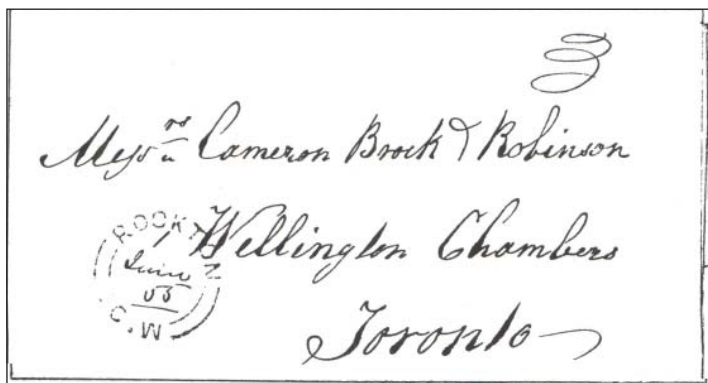 3
Messrs Cameron Brock & Robinson
Wellington Chambers
Toronto
ROOKTON
1
June
55
C.W